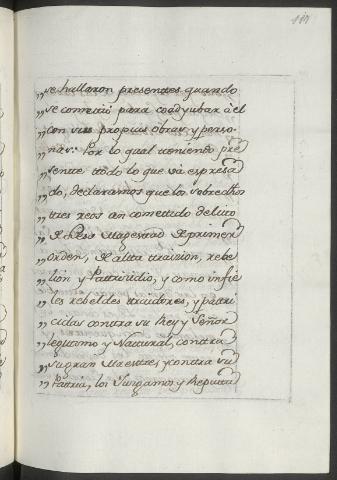 „se hallaron presentes quando
„se cometió para coadyubar à el
„con sus propias obras, y perso-
„nas: Por lo qual teniendo pre
„sente ttodo lo que vá expresa
„do, declaramos que los sobredhos
„ttres reos an cometido delito
„de Lesa Magestad de primer
„orden, de altta traizion, rebe
„lion y Pattrizidio, y como infie
„les rebeldes traidores, y pattri
„cidas contra su Rey y Señor
„legitimo y Natural, conttra
„su gran Maestre, y conttra su
„Pattria, los Jusgamos y Reputa